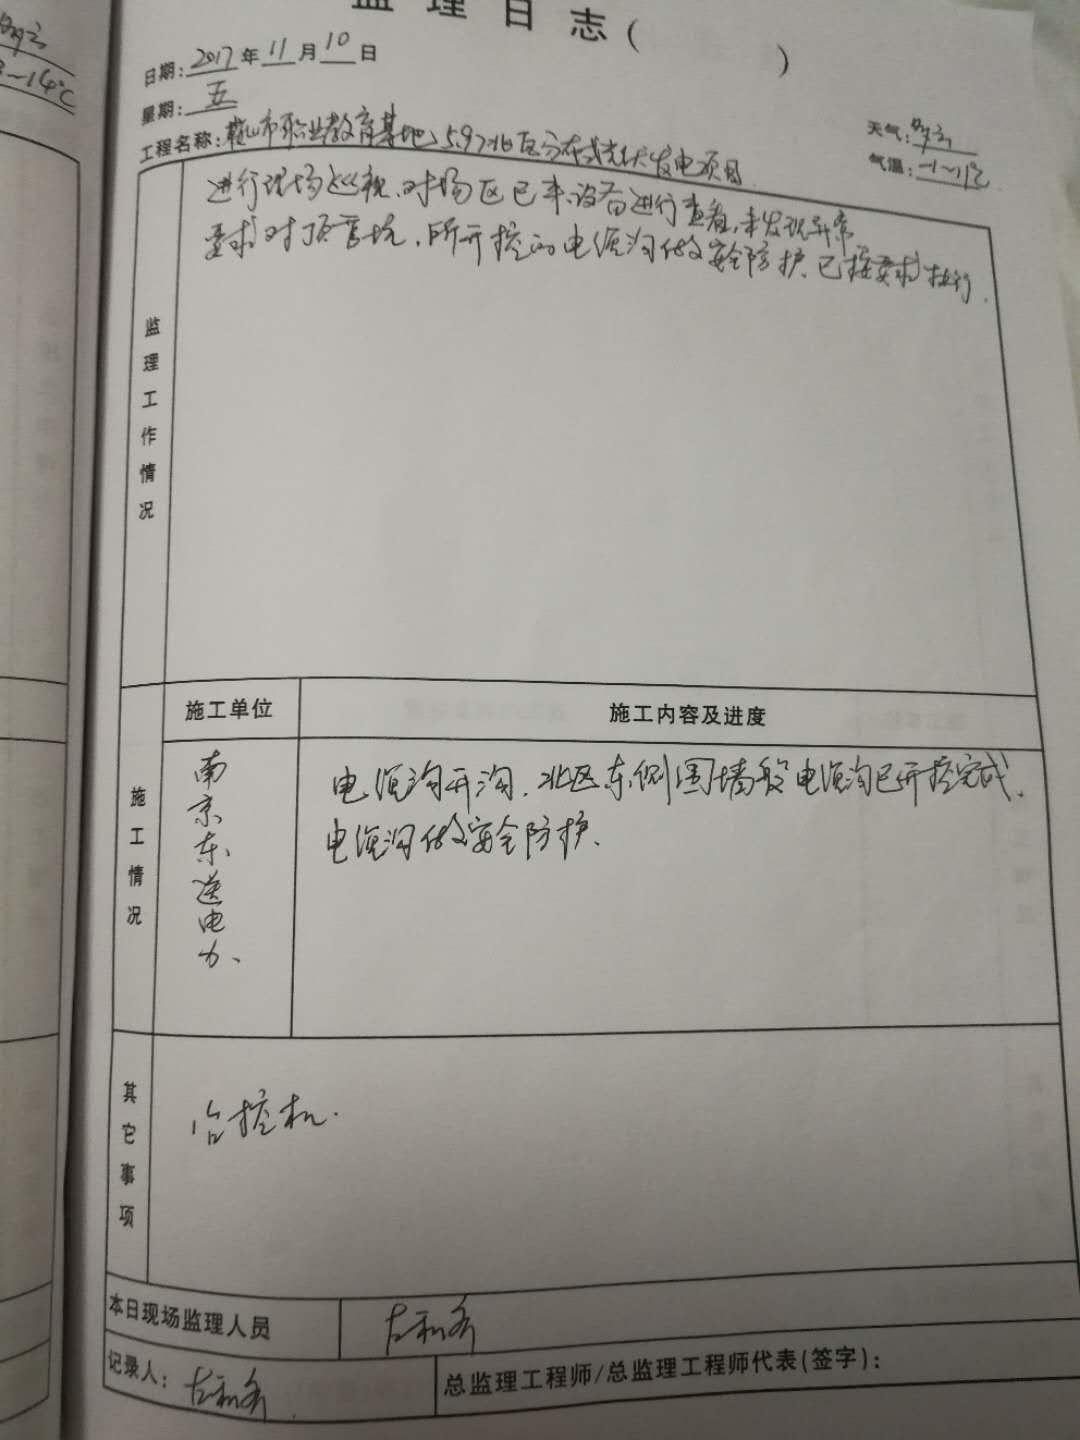 监理日志( )
~14℃
日期:2017年11月10日
星期:五
天气:多云
气温:-1~11℃
工程名称:鞍山市职业教育基地5.97北区分布式光伏发电项目
监理工作情况
进行现场巡视,对场区已来设备进行查看,未发现异常
要求对顶管坑,所开挖的电缆沟做安全防护.已按要求执行.
施工情况
施工单位
施工内容及进度
南京东送电力、
电缆沟开沟.北区东侧围墙段电缆沟已开挖完成.
电缆沟做安全防护.
其它事项
挖机.
本日现场监理人员
记录人:
总监理工程师/总监理工程师代表(签字):